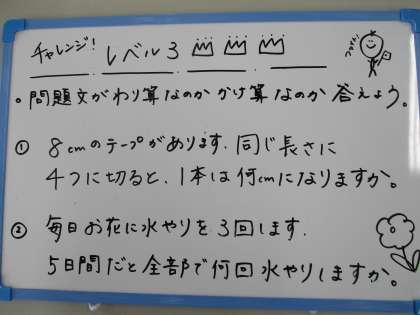 チャレンジ! レベル3
。問題文がわり算なのかかけ算なのか答えよう。
① 8cmのテープがあります。同じ長さに
4つに切ると、1本は何cmになりますか。
② 毎日お花に水やりを3回します。
5日間だと全部で何回水やりしますか。